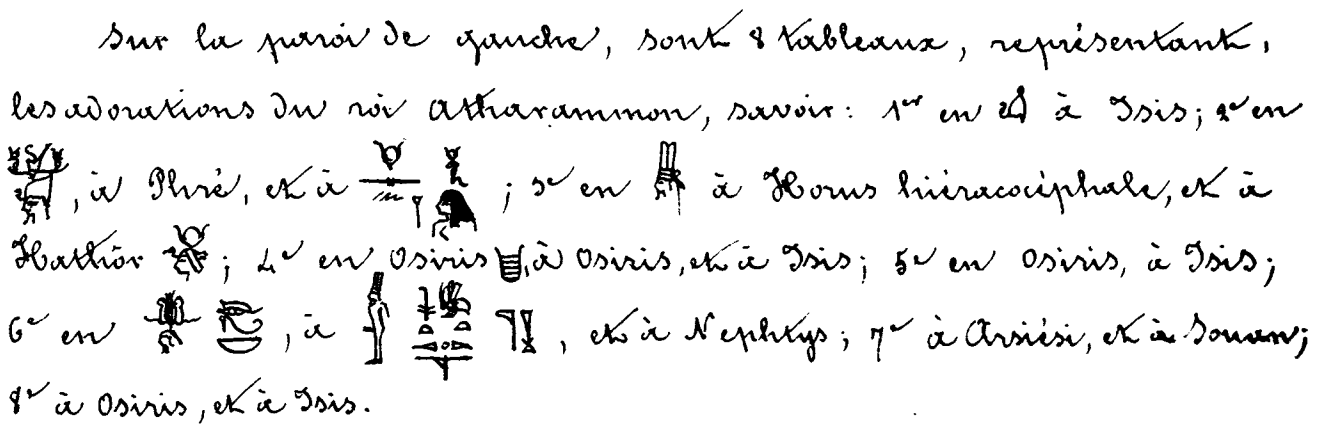 Sur la paroi de gauche, sont 8 tableaux, représentant,
les adorations du roi Atharammon, savoir: 1er en à Isis; 2e en
, à Phré, et à ; 3e en à Horus hiéracocéphale, et à
Hathôr ; 4e en Osiris , à Osiris, et à Isis; 5e en Osiris, à Isis;
6e en , à , et à Nephtys; 7e à Arsiési, et à Souan;
8e à Osiris, et à Isis.